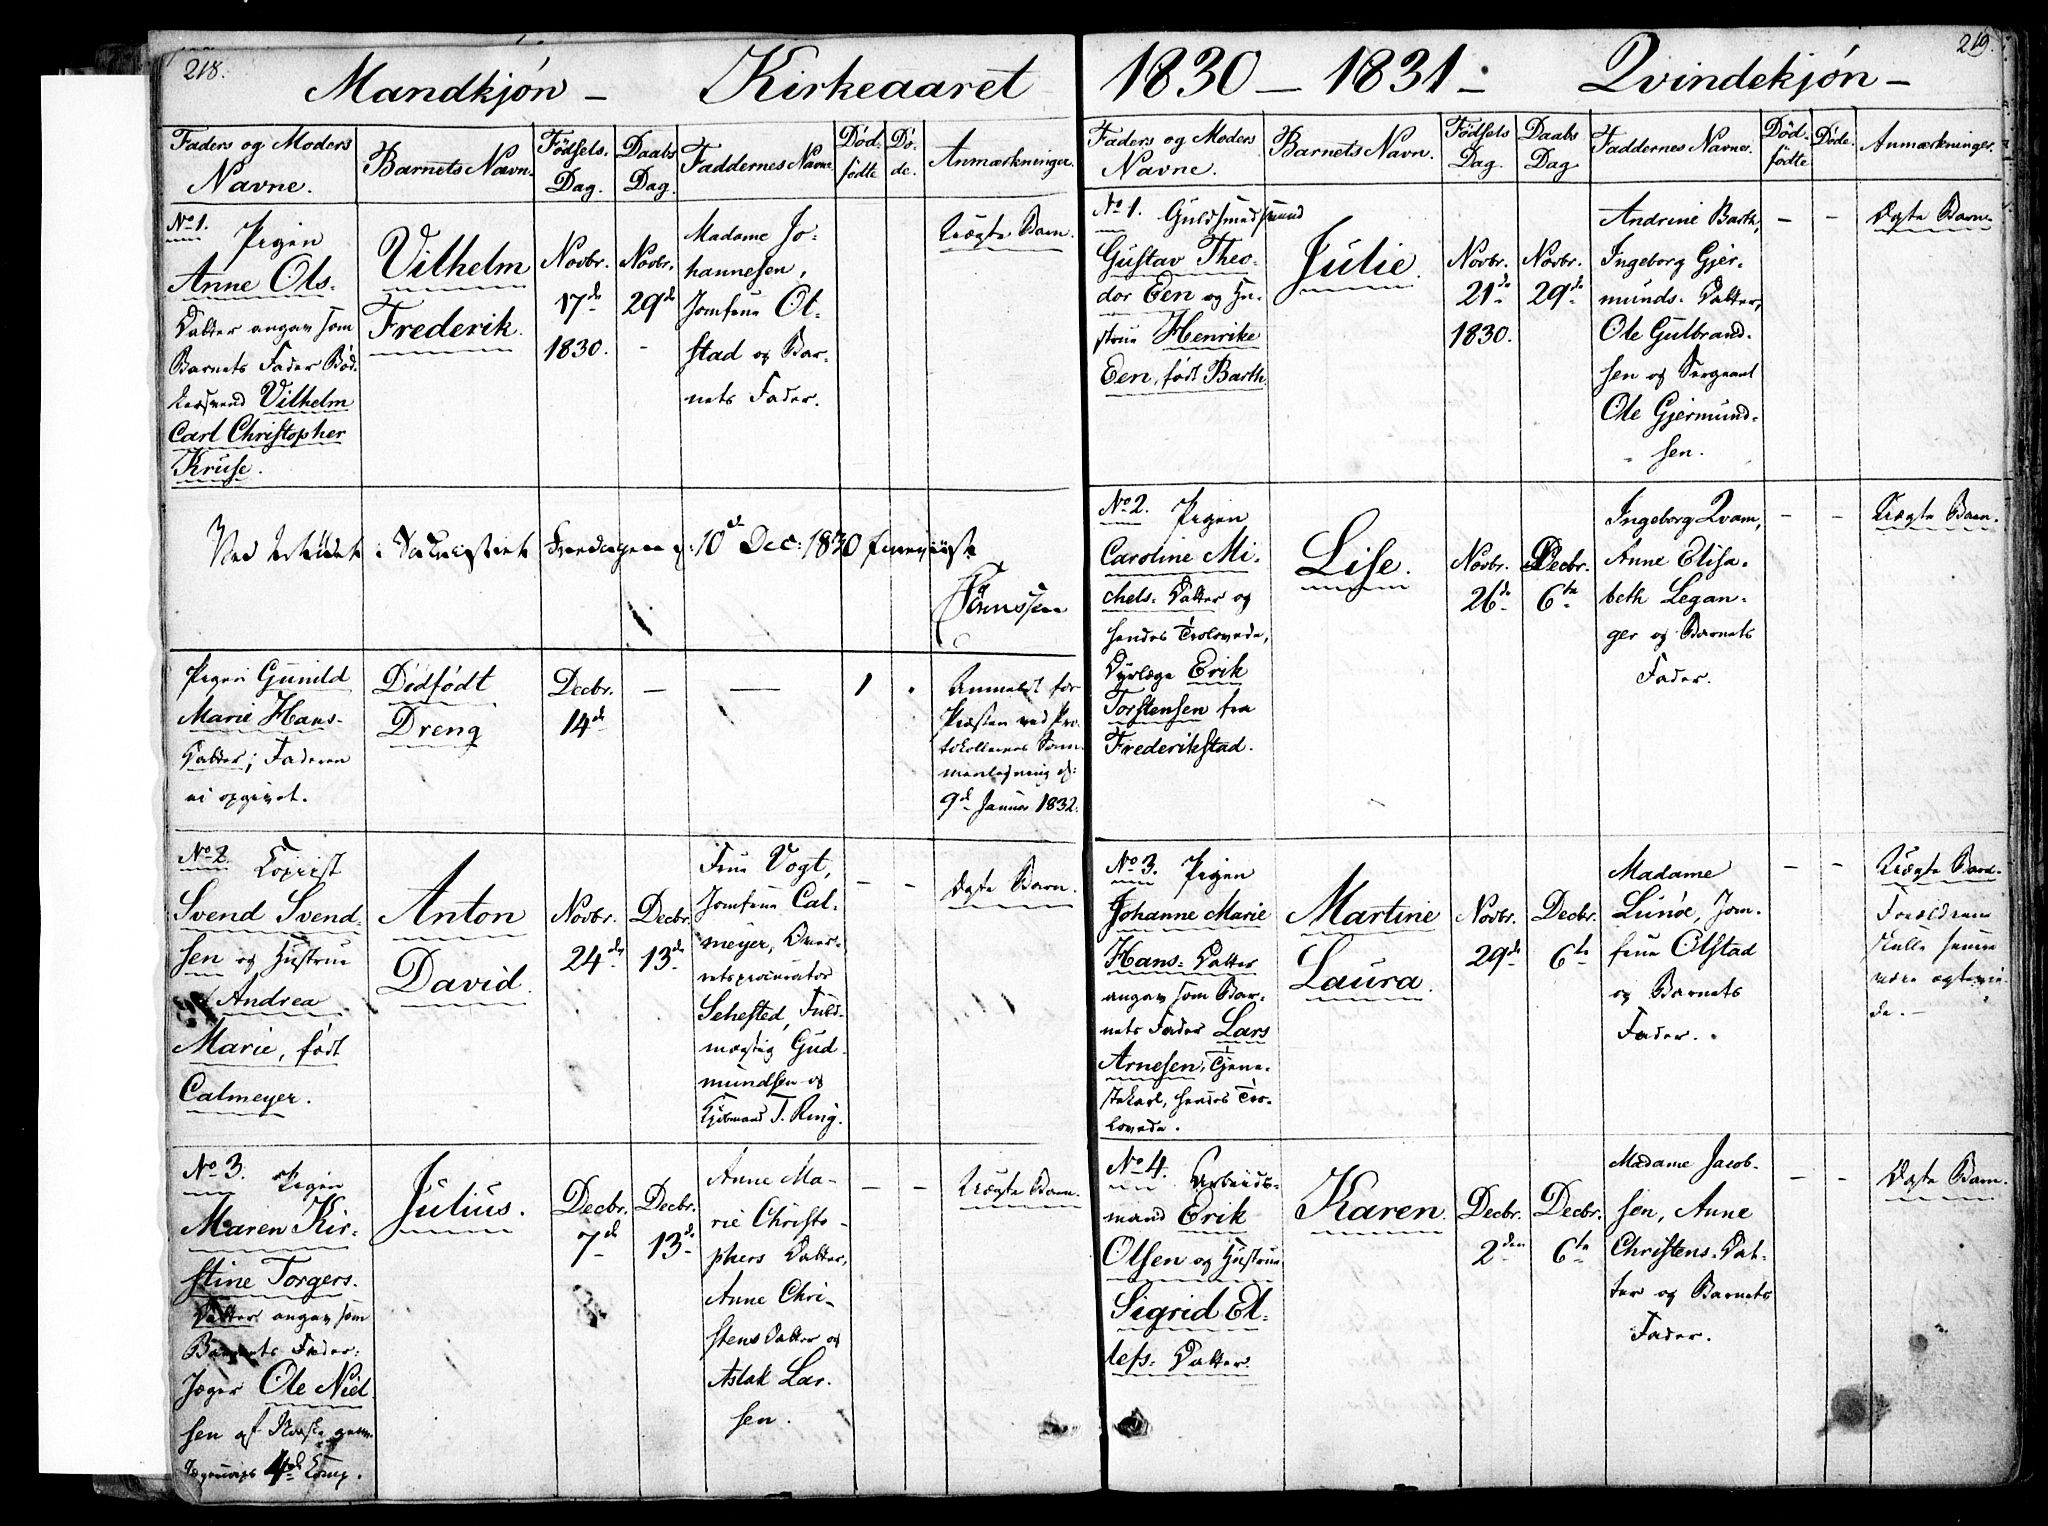 218.
Mandkjón – Kirkeaaret
Faders og Moders
Navne.
Barnets Navn.
Födsels-
Dag.
Daabs
Dag.
Faddernes Navne
Död-
fødte
Dö-
de.
Anmærkninger.
No 1. Pigen
Anne Ols-
Datter angav som
Barnets Fader Bød-
kersvend Vilhelm
Carl Christopher
Kruse.
Vilhelm
Frederik.
Novbr.
17de
1830.
Novbr.
29de
-
Madame Jo-
hannesen,
Jomfrue Ol-
stad og Bar-
nets Fader.
Uægte Barn.
Ved Eftersyn i Sacristiet Fredagen d: 10de Dec: 1830 foreviist
Pigen Gunild
Marie Hans-
Datter; Faderen
ei opgivet.
Dödfödt
Dreng
Decbr.
14de
—
—
1
.
Anmeldt for
Præsten ved Pro-
tokollernes Sam-
menligning d:
9de Januar 1832.
No 2. Copiist
Svend Svend-
sen og Hustrue
Andrea
Marie, født
Calmeyer.
Anton
David.
Novbr.
24de
Decbr.
13de
Frue Vogt,
Jomfrue Cal-
meyer, Over-
retsprocurator
Sehested, Fuld-
mægtig Gud-
mundsen og
Kjøbmand T. Ring.
–
–
Ægte Barn.
No 3. Pigen
Maren Kir-
stine Torgers-
Datter angav som
Barnets Fader:
Jæger Ole Niel-
sen af Norske
4de Comp.
Julius.
Decbr.
7de
Decbr.
13de
Anne Ma-
rie Christo-
phers Datter,
Anne Chri-
stens Datter og
Aslak Lar-
sen.
–
–
Uægte Barn.
219.
1830 – 1831 – Qvindekjón –
Faders og Moders
Navne.
Barnets Navn.
Födsels
Dag.
Daabs
Dag
Faddernes Navne.
Död-
fødte
Döde.
Anmærkninger.
No 1. Guldsmedsvend
Gustav Theo-
dor Een og Hu-
strue Henrike
Een, født Barth
Julie.
Novbr.
21de
1830.
Novbr.
29de
Andrine Barth,
Ingeborg Gjer-
munds- Datter,
Ole Gulbrand-
sen og Sergeant
Ole Gjermund-
sen.
–
–
Ægte Barn
No 2. Pigen
Caroline Mi-
chels- Datter og
hendes Trolovede,
Dyrlæge Erik
Torstensen fra
Frederikstad.
Lise.
Novbr.
26de
Decbr.
6te
Ingeborg Qvam,
Anne Elisa-
beth Legan-
ger og Barnets
Fader.
–
–
Uægte Barn.
No 3. Pigen
Johanne Marie
Hans- Datter
angav som Bar-
nets Fader Lars
Arnesen, Tjene-
stekarl, hendes Tro-
lovede.
Martine
Laura.
Novbr.
29de
Decbr.
6te
Madame
Lunöe, Jom-
frue Olstad
og Barnets
Fader.
–
–
Uægte Barn.
Forældrene
skulle senere
være ægtevie-
de. –
No 4. Arbeids-
mand Erik
Olsen og Hustrue
Sigrid El-
lefs- Datter.
Karen.
Decbr.
2den
Decbr.
6te
Madame Jacob-
sen, Anne
Christens- Dat-
ter og Barnets
Fader.
–
–
Ægte Barn.